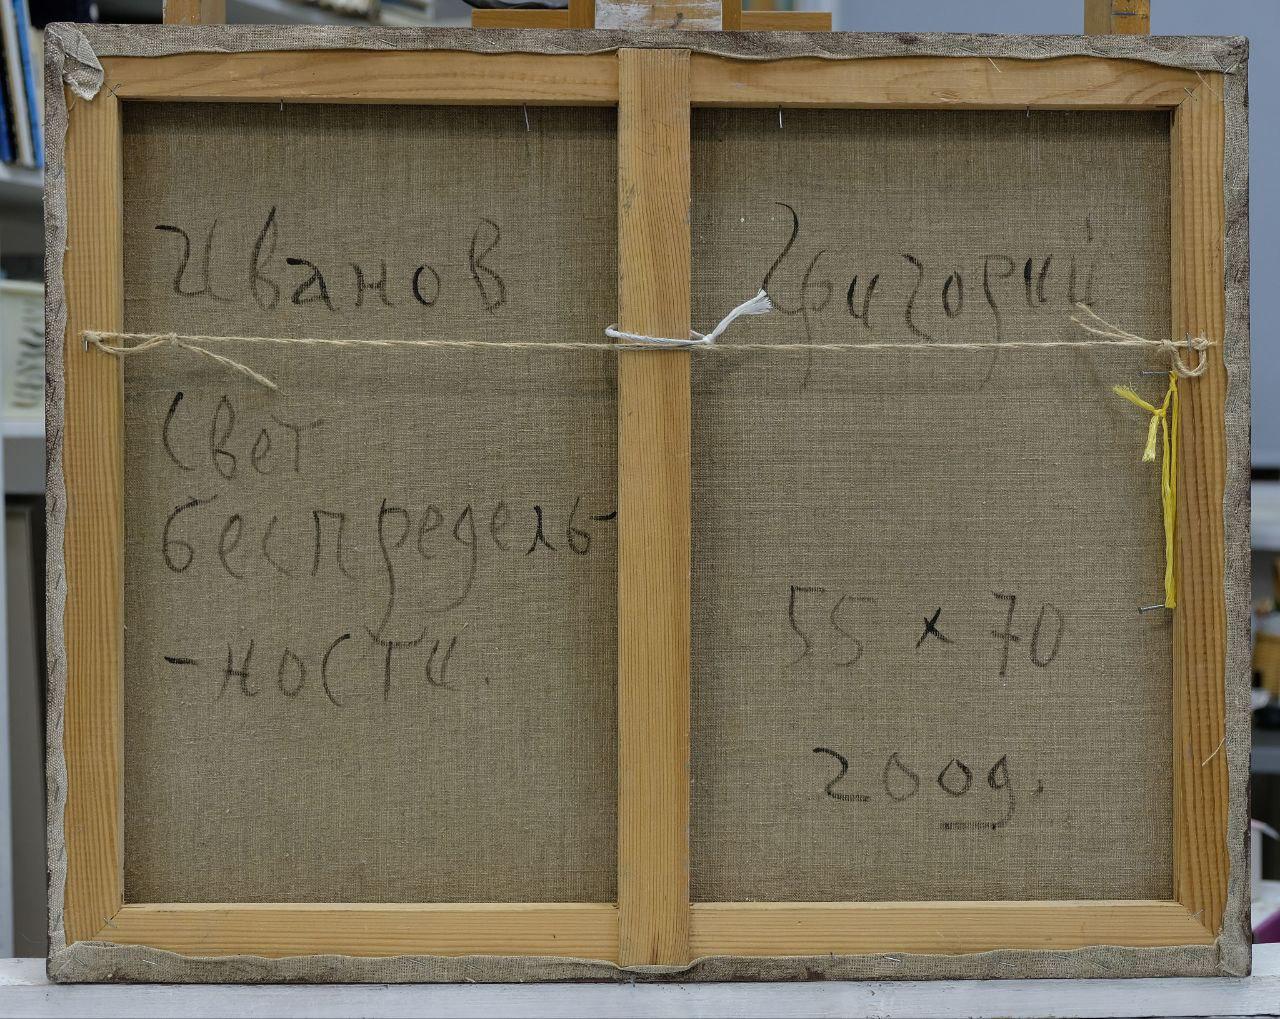 Иванов Григорий
Свет
беспредель-
-ности.
55 x 70
2009.